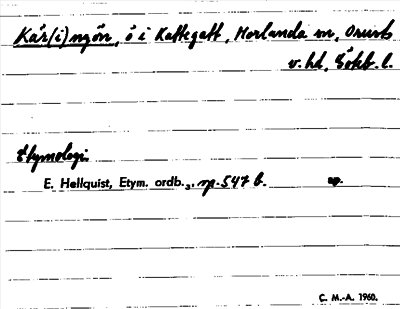 Kär(i)ngön, ö i Kattegatt, Morlanda sn, Orusts
v. hd, Götéb. l.
Etymologi
E. Hellquist, Etym. ordb.3, sp. 547 b.
C. M.-A. 1960.